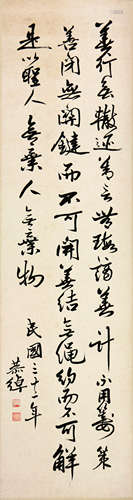 善行無轍迹善言無瑕謫善計不用籌策
善閉無關鍵而不可開善結無繩約而不可解
是以聖人無棄人無棄物
民國三十一年